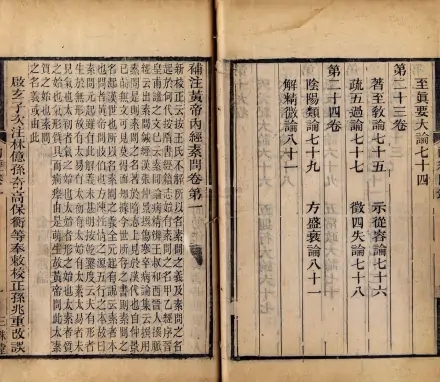 至真要大論七十四
第二十三卷
著至教論七十五 示從容論七十六
疏五過論七十七 徵四失論七十八
第二十四卷
陰陽類論七十九 方盛衰論八十
解精微論八十一
補注黃帝內經素問卷第一
新校正云按王氏不解所以名素問之義及素問之名
起於何代按隋書經籍志始有素問之名甲乙經序晉
皇甫謐之文已云素問論病精辨王叔和西晉人撰脉
經云出素問鍼經漢張仲景撰傷寒卒病論集云撰用
素問是則素問之名著於隋志上見於漢代也自仲景
已前無文可見莫得而知據今世所存之書則素問之
名起漢世也所以名素問之義全元起有說云素者本
也問者黃帝問歧伯也方陳性情之源五行之本故曰
素問元起雖有此解義未甚明按乾鑿度云夫有形者
生於無形故有太易有太初有太始有太素太易者未
見氣也太初者氣之始也太始者形之始也太素者質
之始也氣形質具而痾瘵由是萌生故黃帝問此太素
質之始也素問
之名義或由此
啟玄子次注林億孫奇高保衡等奉敕校正孫兆重改誤